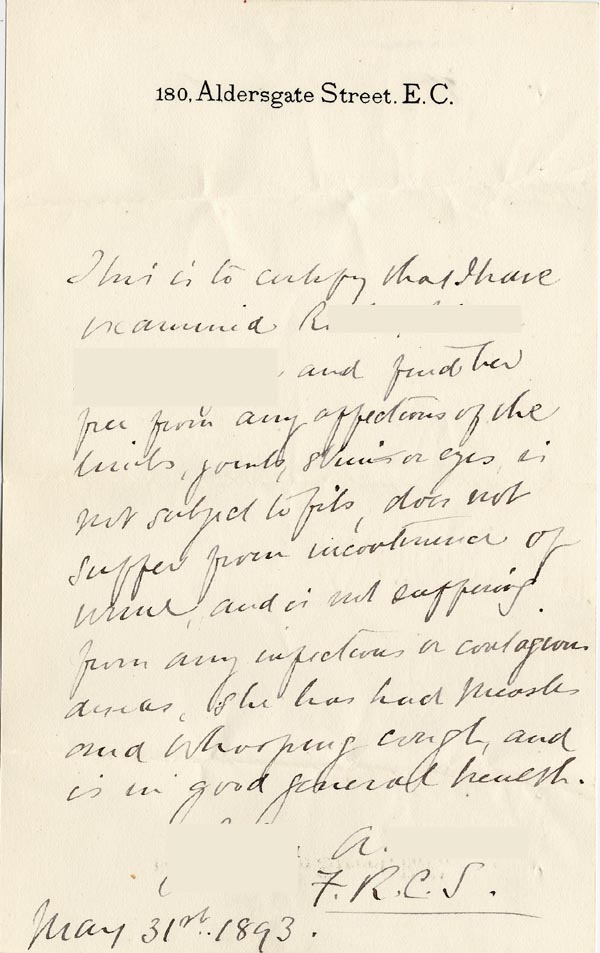 180, Aldersgate Street. E.C.
This is to certify that I have
examined R.
, and find her
free from any affections of the
limbs, joints, skin or eyes, is
not subject to fits, does not
suffer from incontinence of
urine, and is not suffering
from any infectious or contagious
diseas, She has had Measles
and Whooping cough, and
is in good general health.
A.
F.R.C.S.
May 31st. 1893.